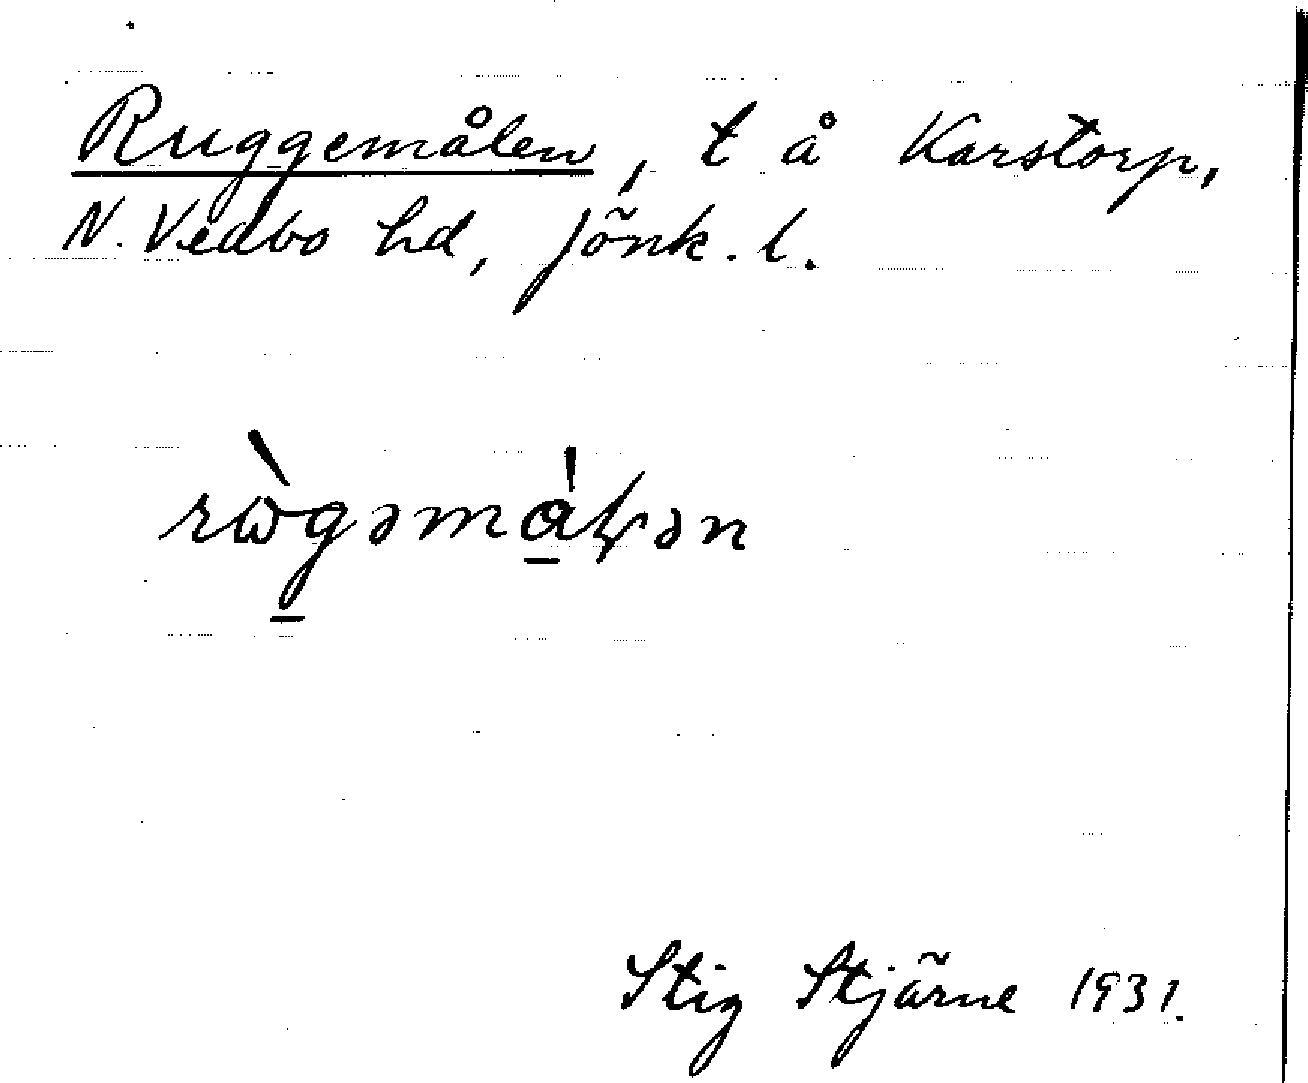 Ruggemålen, t å Karstorp,
N. Vedbo hd, Jönk. l.
rὼg̱əmά̲ɫən
Stig Stjärne 1931.